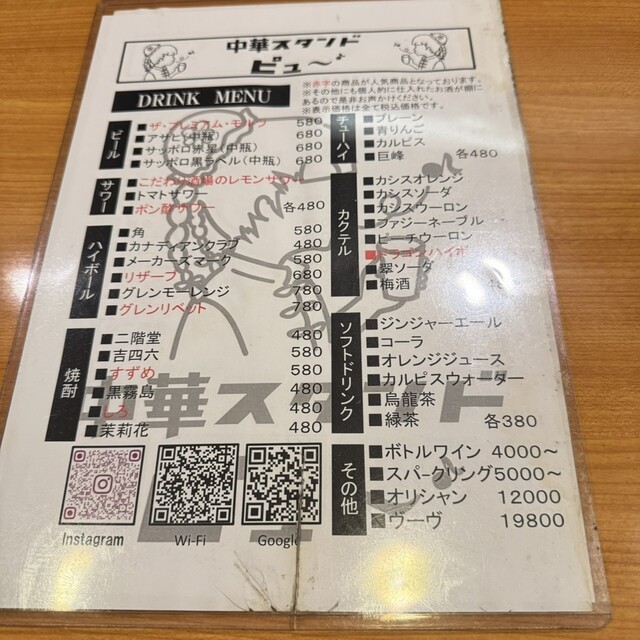 中華スタンド
ピュ〜♪
DRINK MENU
※赤字の商品が人気商品となっております。
※その他にも個人的に仕入れたお酒が棚に
あるので是非お声がけください。
※表示価格は全て税込価格です。
ビール
■ザ・プレミアム・モルツ 580
■アサヒ(中瓶) 680
■サッポロ赤星(中瓶) 680
■サッポロ黒ラベル(中瓶) 680
サワー
■こだわり酒場のレモンサワー
■トマトサワー
■ポン酢サワー 各480
ハイボール
■角 580
■カナディアンクラブ 480
■メーカーズマーク 580
■リザーブ 680
■グレンモーレンジ 780
■グレンリベット 780
焼酎
■二階堂 480
■吉四六 580
■すずめ 580
■黒霧島 480
■しろ 480
■茉莉花 480
チューハイ
■プレーン
■青りんご
■カルピス
■巨峰 各480
カクテル
■カシスオレンジ
■カシスソーダ
■カシスウーロン
■ファジーネーブル
■ピーチウーロン
■ドラゴンハイボ
■翠ソーダ
■梅酒
ソフトドリンク
■ジンジャーエール
■コーラ
■オレンジジュース
■カルピスウォーター
■烏龍茶
■緑茶 各380
その他
■ボトルワイン 4000〜
■スパークリング5000〜
■オリシャン 12000
■ヴーヴ 19800
Instagram
Wi-Fi
Google
中華スタンド